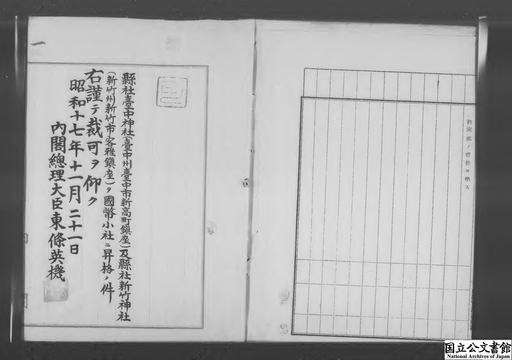 縣社臺中神社(臺中州臺中市新高町鎮座)及縣社新竹神社
(新竹州新竹市客雅鎮座)ヲ國幣小社ニ昇格ノ件
右謹テ裁可ヲ仰ク
昭和十七年十一月二十一日
內閣總理大臣東條英機
国立公文書館
National Archives of Japan